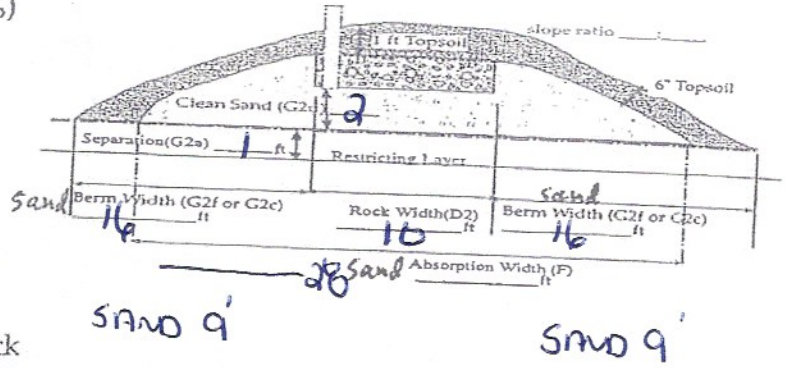 slope ratio
1 ft Topsoil
6" Topsoil
Clean Sand (G2 2
Separation(G2a) 1 ft
Restricting Layer
sand
Sand Berm Width (G2f or G2c) 16 ft
Rock Width(D2) 10 ft
Berm Width (G2f or G2c) 16 ft
28 Sand Absorption Width (F) ft
SAND 9'
SAND 9'